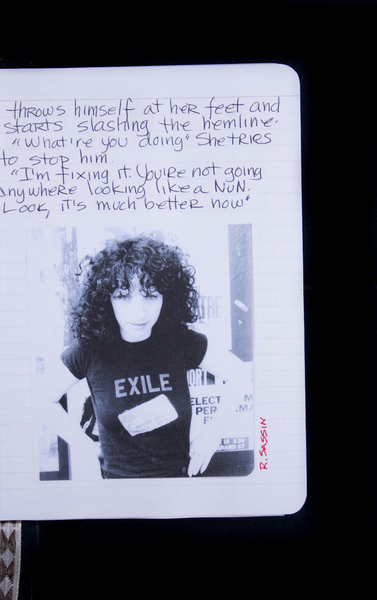 throws himself at her feet and
starts slashing the hemline.
"What're you doing" She tries
to stop him.
"I'm fixing it. You're not going
anywhere looking like a NUN.
Look, it's much better now"
TRE
EXILE
ORT
ELECT
PER
R. SASSIN